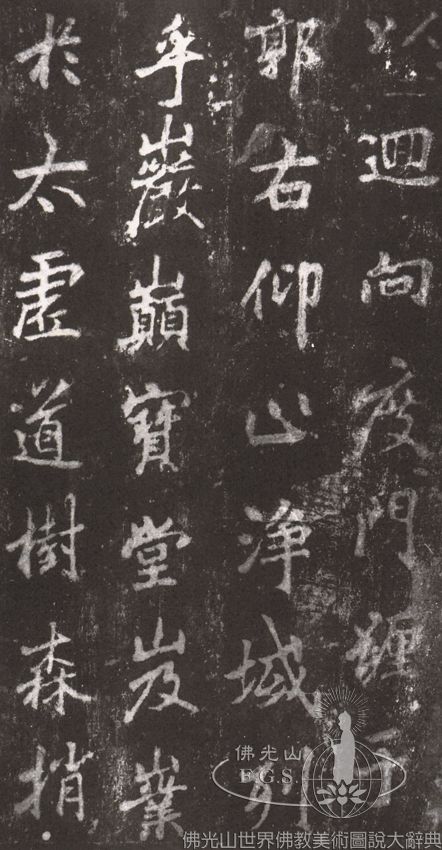 以迴向度門
郭右仰止淨域列
乎巖巔寶堂岌嶪
於太虛道樹森捎
佛光山
F.G.S.
佛光山世界佛教美術圖說大辭典